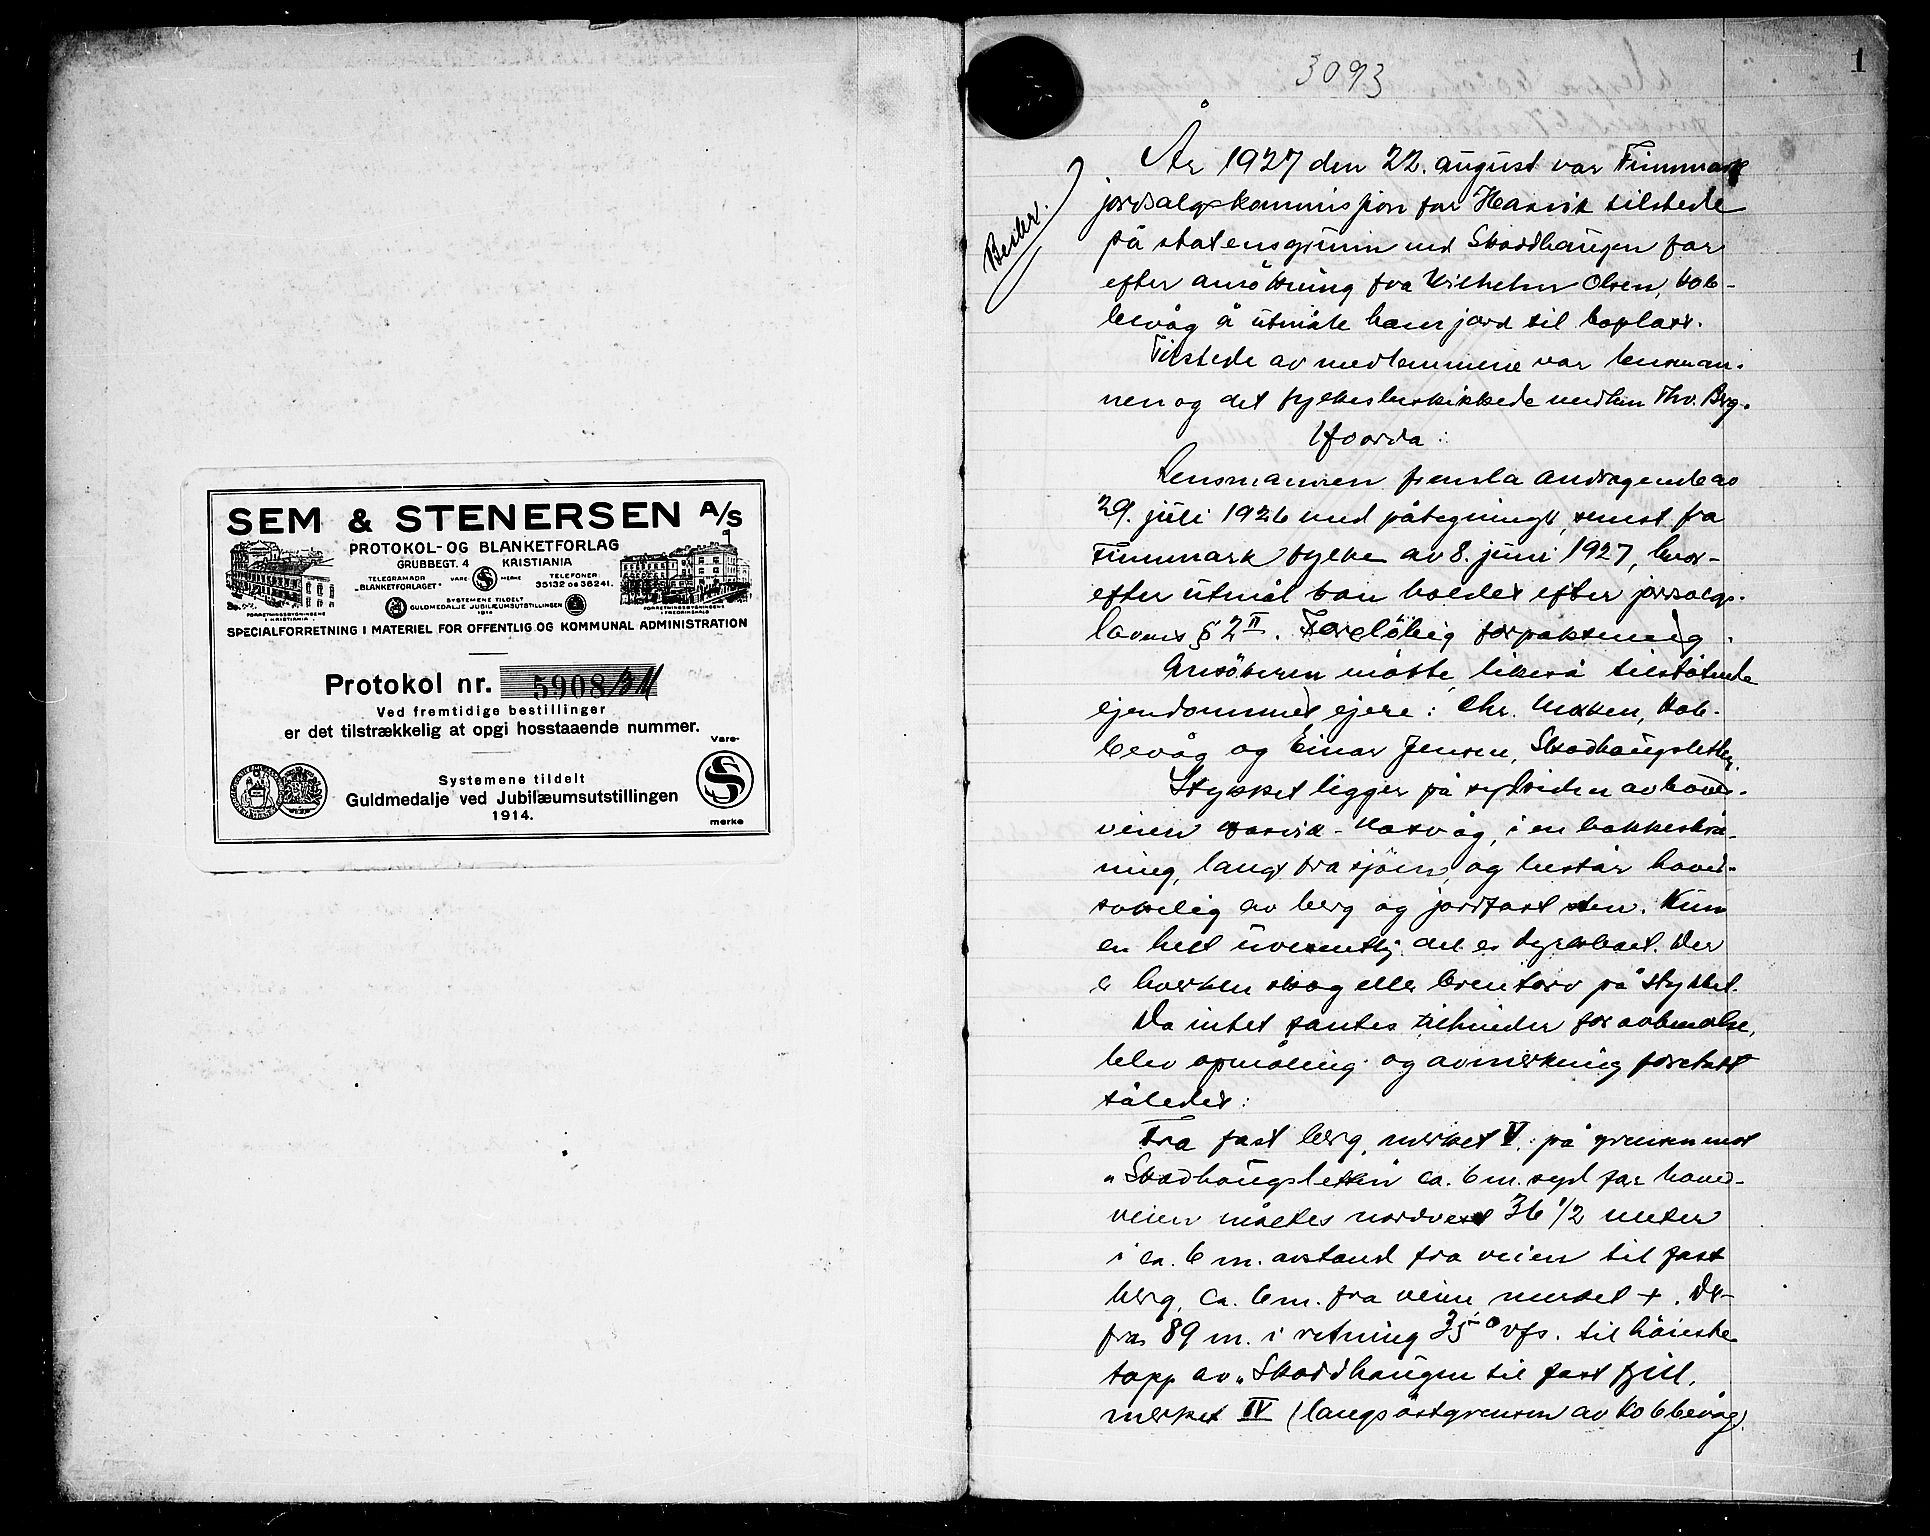 SEM & STENERSEN A/S
PROTOKOL- OG BLANKETFORLAG
GRUBBEGT. 4 KRISTIANIA
TELEGRAMADR „BLANKETFORLAGET" VARE SS MERKE TELEFONER 35132 OG 36241.
SYSTEMENE TILDELT
GULDMEDALJE JUBILÆUMSUTSTILLINGEN
1914
FORRETNINGSBYGNINGENE I KRISTIANIA
FORRETNINGSBYGNINGENE I FREDRIKSHALD
SPECIALFORRETNING I MATERIEL FOR OFFENTLIG OG KOMMUNAL ADMINISTRATION
Protokol nr. 5908
Ved fremtidige bestillinger
er det tilstrækkelig at opgi hosstaaende nummer.
Systemene tildelt
Guldmedalje ved Jubilæumsutstillingen
1914.
Vare-
SS
merke
3093
1
År 1927 den 22. august var Finnmark
jordsalgskommisjon for Hasvik tilstede
på statensgrunn ved Skoddhaugen for
efter ansökning fra Wilhelm Olsen, Kob-
bevåg å utmåle ham jord til boplass.
Tilstede av medlemmene var lensman-
nen og det fylkesbeskikkede medlem Thv. Berg.
Hvorda:
Lensmannen fremla andragende av
29. juli 1926 med påtegninger, senest fra
Finnmark fylke av 8. juni 1927, hvor-
efter utmål kan holdes efter jordsalgs-
lovens § 2 II. Foreløbig forpaktning.
Ansökeren mötte, likeså tilstötende
ejendommes ejere: Chr. Mikken, Kob-
bevåg og Einar Jensen, Skodhaugsletten.
Stykket ligger på sydsiden av hoved-
veien Hasvik - Hasvåg, i en bakkeskrå-
ning, langt fra sjöen, og består hoved-
sakelig av berg og jordfast sten. Kun
en helt uvesentlig del er dyrkbart. Der
er hverken skog eller brentorv på stykket.
Da intet fantes til hinder for avhendelse,
blev opmåling og avmerkning foretatt
således:
Fra fast berg, merket V. på grensen mot
„Skodhaugsletten" ca. 6 m. syd for hoved-
veien måltes nordvest 36 1/2 meter
i ca. 6 m. avstand fra veien til fast
berg, ca. 6 m. fra veien merket +. Der-
fra 89 m. i retning 35° vfs. til höieste
topp av „Skoddhaugen til fast fjell,
merket IV (langs östgrensen av Kobbevåg)